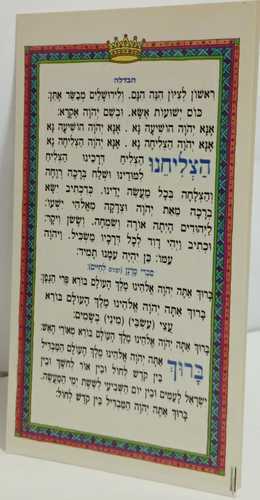 הבדלה
ראשון לציון הנה הנם. ולירושלים מבשר אתן:
כוס ישועות אשא. ובשם יהוה אקרא:
אנא יהוה הושיעה נא. אנא יהוה הושיעה נא
אנא יהוה הצליחה נא. אנא יהוה הצליחה נא
הצליחנו הצליח דרכינו הצליח
למודינו ושלח ברכה רוחה
והצלחה בכל מעשה ידינו. כדכתיב ישא
ברכה מאת יהוה וצדקה מאלהי ישעו:
ליהודים היתה אורה ושמחה. וששן ויקר:
וכתיב ויהי דוד לכל דרכיו משכיל. ויהוה
עמו: כן יהיה עמנו תמיד:
סברי מרנן (ועונים לחיים):
ברוך אתה יהוה אלהינו מלך העולם בורא פרי הגפן:
ברוך אתה יהוה אלהינו מלך העולם בורא
עצי (עשבי) (מיני) בשמים:
ברוך אתה יהוה אלהינו מלך העולם בורא מאורי האש:
ברוך אתה יהוה אלהינו מלך העולם המבדיל
בין קדש לחול ובין אור לחשך ובין
ישראל לעמים ובין יום השביעי לששת ימי המעשה.
ברוך אתה יהוה המבדיל בין קדש לחול: